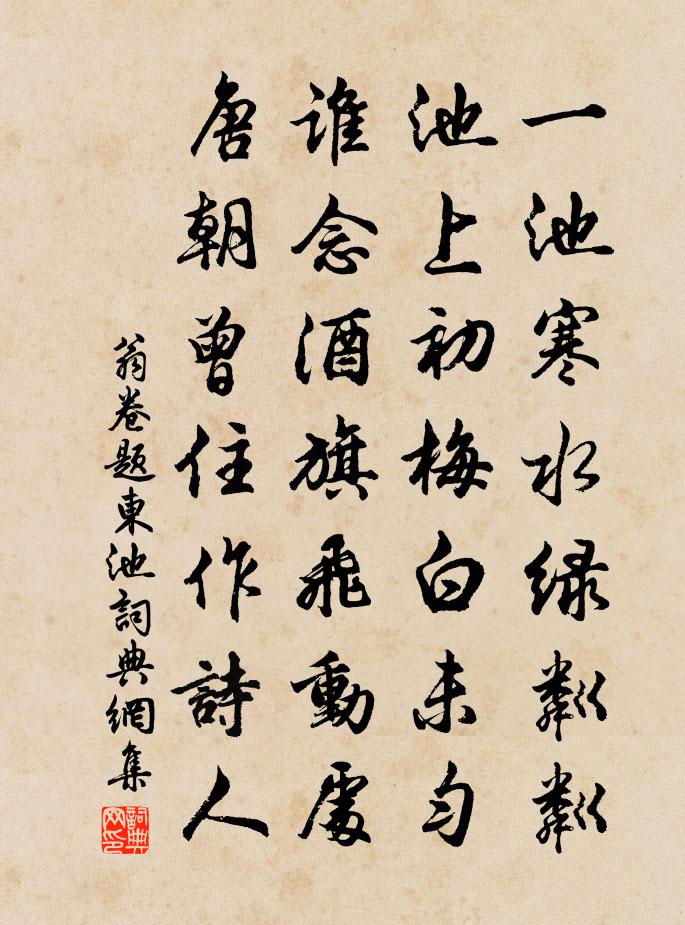 一池寒水緑粼粼
池上初梅白未匀
誰念酒旗飛動處
唐朝曾住作詩人
翁卷題東池詞典網集
詞典网印